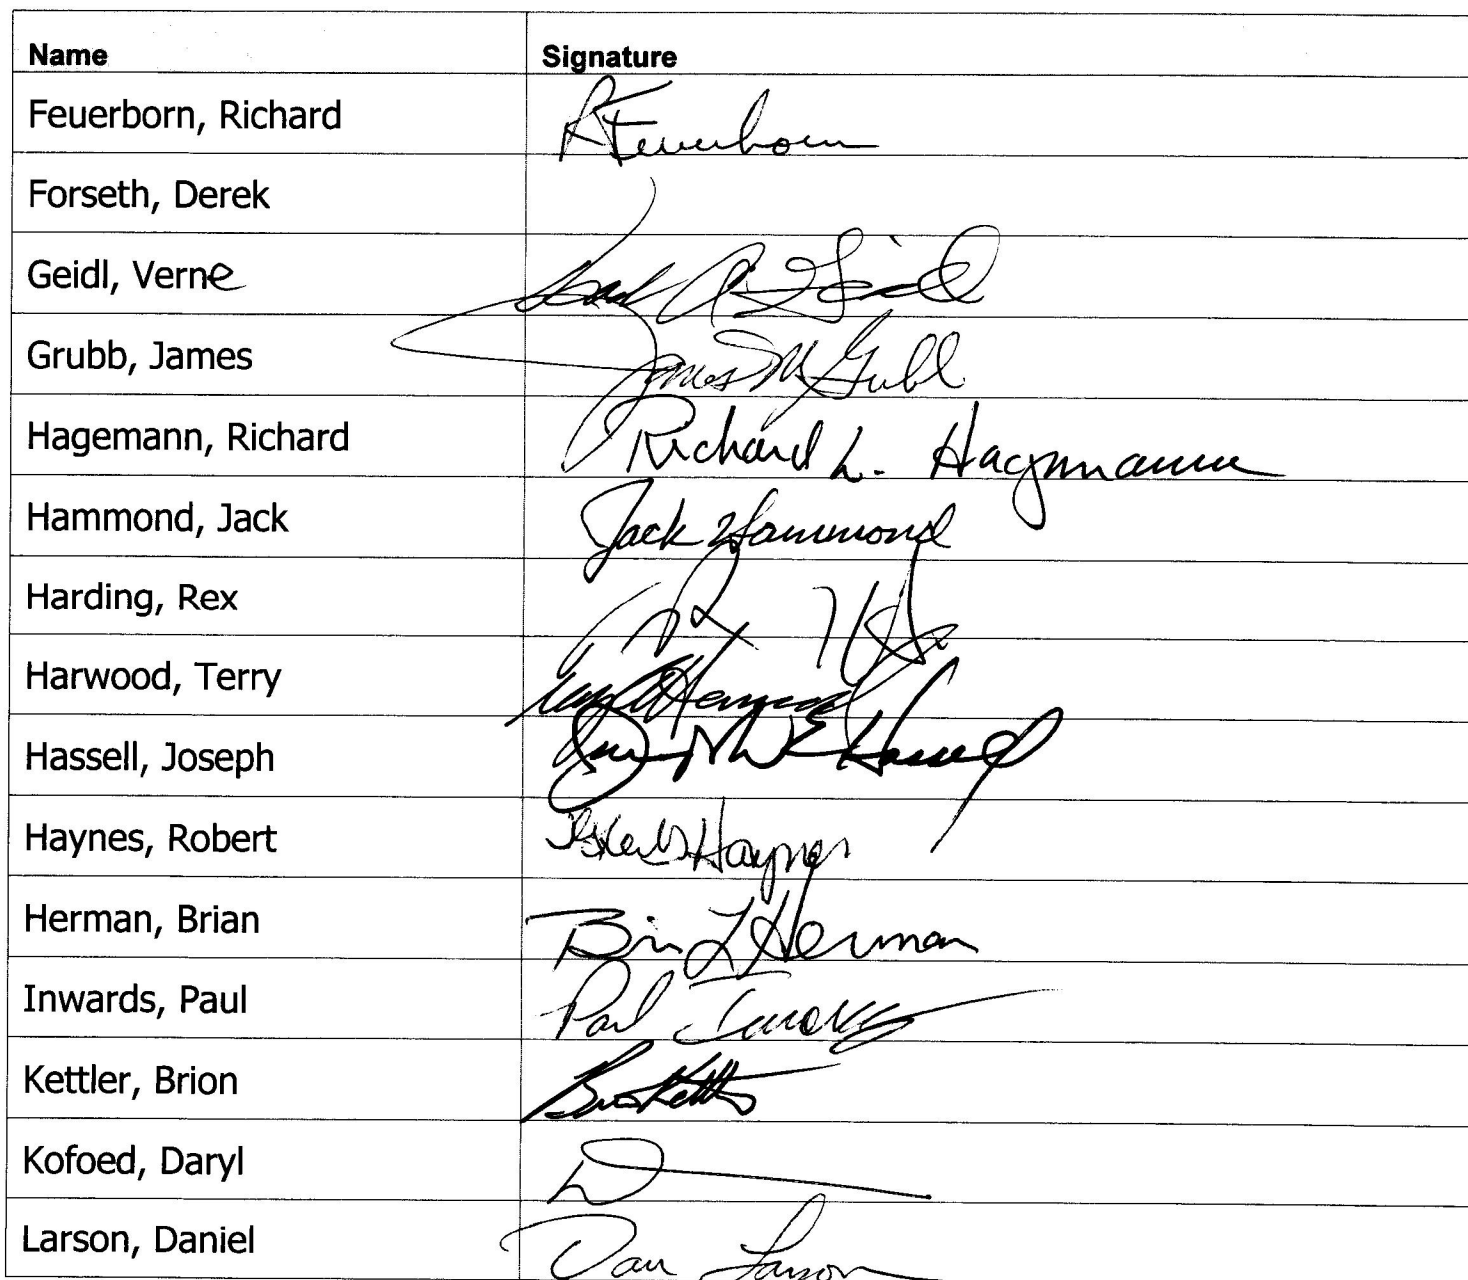 Name Signature
Feuerborn, Richard RFeuerborn
Forseth, Derek
Geidl, Verne A Geidl
Grubb, James James M Grubb
Hagemann, Richard Richard L. Hagemann
Hammond, Jack Jack Hammond
Harding, Rex
Harwood, Terry
Hassell, Joseph Hassell
Haynes, Robert Haynes
Herman, Brian Brian L Herman
Inwards, Paul Paul Inwards
Kettler, Brion
Kofoed, Daryl
Larson, Daniel Dan Larson